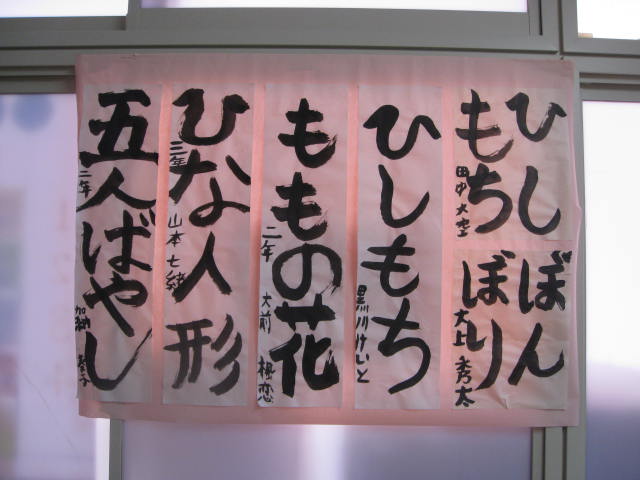 ひし
もち
田中大空
ぼん
ぼり
大上秀太
ひしもち
黒川けいと
ももの花
二年 大前
ひな人形
三年 山本七緒
五人ばやし
二年 加納